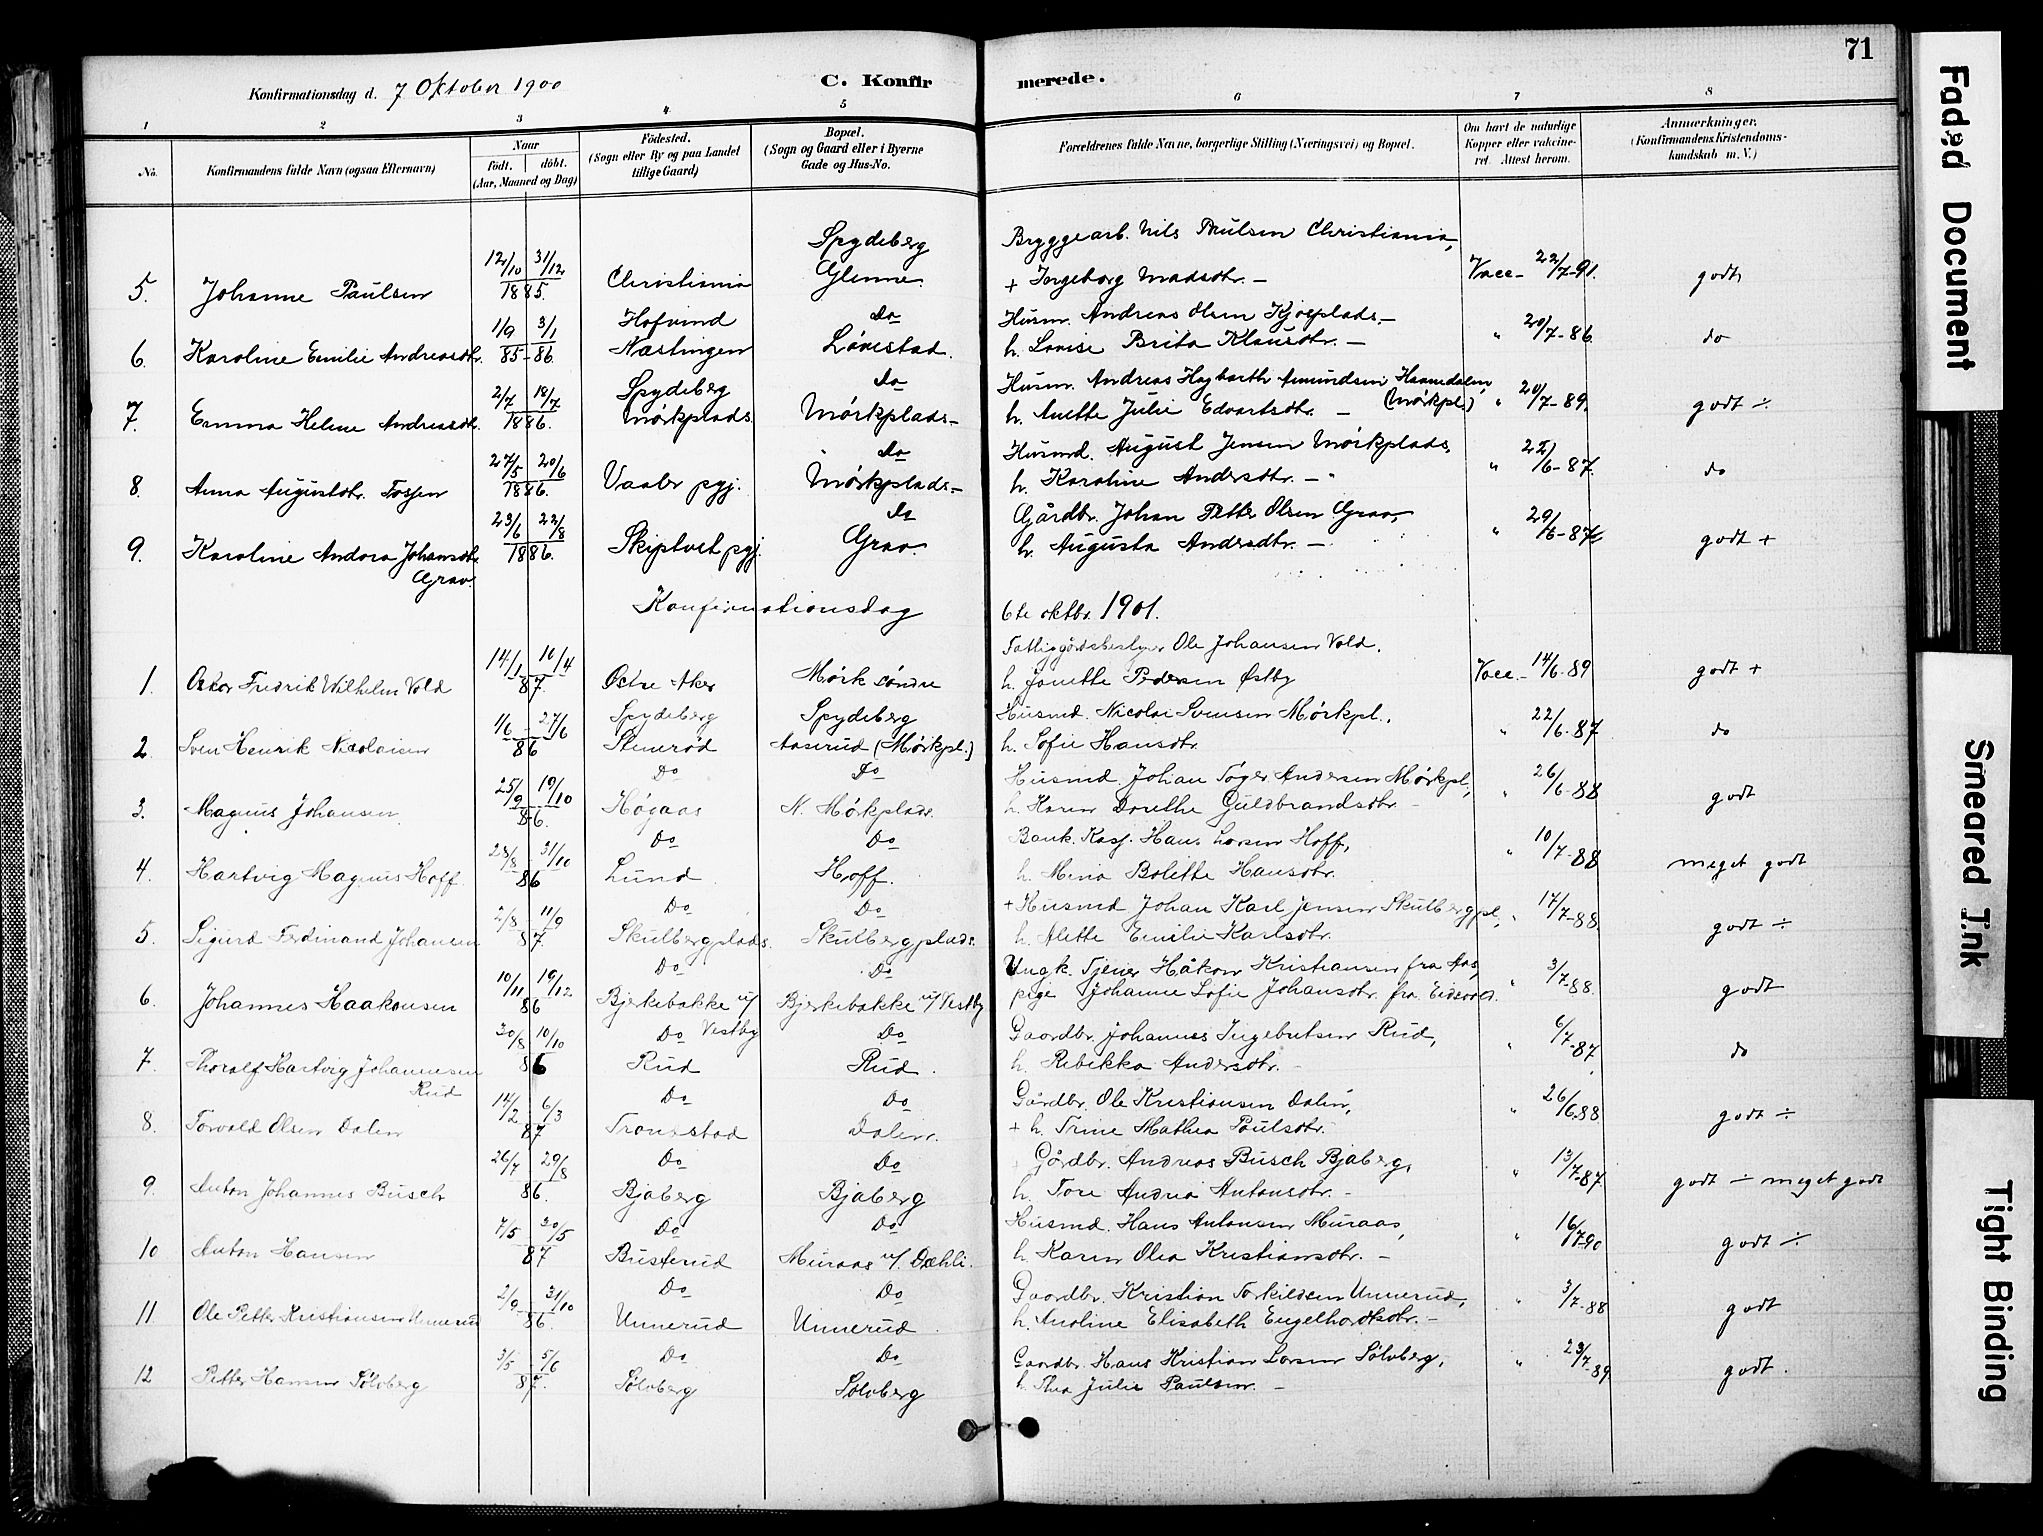 71
Konfirmationsdag d. 7 Oktober 1900
C. Konfirmerede.
1 2 3 4 5 6 7 8
No.
Konfirmandens fulde Navn (ogsaa Efternavn)
Naar
födt. döbt.
(Aar, Maaned og Dag)
Födested.
(Sogn eller By og paa Landet
tillige Gaard)
Bopæl.
(Sogn og Gaard eller i Byerne
Gade og Hus-No.
Forældrenes fulde Navne, borgerlige Stilling (Næringsvei) og Bopæl.
Om havt de naturlige
Kopper eller vakcine-
ret. Attest herom.
Anmærkninger,
(Konfirmandens Kristendoms-
kundskab m. V.)
5. Johanne Paulsen 12/10 31/12 1885. Christiania Spydeberg Glenne Bryggearb. Nils Paulsen Christiania,
+ Ingeborg Madsdtr. — Vacc - 22/7-91. godt
6. Karoline Emilie Andreasdtr. 1/9 3/1 85-86. Hofvind Næstingen do Lövestad. Husm. Andreas Olsen
h. Lovise Brita Klausdtr. — " 20/7-86. do
7. Emma Helene Andreasdtr. 2/7 18/7 1886. Spydeberg Mörkplads do Mörkplads- Husm. Andreas Hagbarth Amundsen
h. Anette Julie Edvartsdtr. — (Mörkpl.) " 20/7-89. godt ÷
8. Anna Augustdtr. Fosjen 27/5 20/6 1886. Vaaler pgj. do Mörkplads- Husmd. August Jensen Mörkplads,
h. Karoline Andersdtr. — " 22/6-87. do
9. Karoline Andora Johansdtr. Grav. 23/6 22/8 1886. Skiptvet pgj. do Grav Gårdbr. Johan Petter Olsen Grav,
h. Augusta Andersdtr. — " 29/6-87 godt +
Konfirmationsdag 6te oktbr. 1901.
1. Oskar Fredrik Wilhelm Vold 14/1 10/4 87. Östre Aker Mörk söndre Fattiggårdsbestyrer Ole Johansen Vold.
h. Jonette Pedersen Østby Vacc. - 14/6 89 godt +
2 Sven Henrik Nicolaisen 1/6 27/6 86 Spydeberg Stenerød Spydeberg Aaserud (Mørkpl.) Husmd. Nicolai Svensen Mørkpl.,
h. Sofie Hansdtr. " 22/6-87 do
3. Magnus Johansen 25/9 19/10 86. Do Høgaas Do N. Mørkplads. Husmd Johan Töger Andersen Mørkpl,
h. Karen Dorethe Guldbrandsdtr - " 26/6-88 godt
4. Hartvig Magnus Hoff. 28/8 31/10 86 Do Lund Do Hoff. Bank. Kasj. Hans Larsen Hoff,
h. Mina Bolette Hansdtr. " 10/7-88 meget godt
5. Sigurd Ferdinand Johansen 2/8 11/9 87. Do Skulbergplads. Do Skulbergplads. + Husmd Johan Karl Jensen Skulbergpl,
h. Alette Emilie Karlsdtr. " 17/7-88 godt ÷
6. Johannes Haakonsen 10/11 19/12 86 Do Bjerkebakke u/ Vestby Do Bjerkebakke u/ Vestby Ungk. Tjener Håkon Kristiansen fra Aas,
pige Johanne Sofie Johansdtr. fra Eidsvold. " 3/7-88. godt
7. Thoralf Hartvig Johannesen Rud 30/8 10/10 86 Do Rud Do Rud. Gaardbr. Johannes Ingebretsen Rud,
h. Rebekka Andersdtr. - " 6/7-87, do
8. Torvald Olsen Dalen 14/2 6/3 87 Do Tronstad Do Dalen. Gårdbr. Ole Kristiansen Dalen,
+ h. Trine Mathea Paulsdtr. " 26/6 88 godt ÷
9. Anton Johannes Busch 26/7 29/8 86. Do Bjaberg Do Bjaberg Gårdbr. Andreas Busch Bjaberg,
h. Tore Andrea Antonsdtr. - " 13/7-87. godt ÷ meget godt
10 Anton Hansen 7/5 30/5 87 Do Busterud Do Muraas u/. Dæhli. Husmd. Hans Antonsen Muraas,
h. Karen Olea Kristiansdtr. - " 16/7-90 godt ÷
11. Ole Petter Kristiansen Unnerud 2/9 31/10 86. Do Unnerud Do Unnerud. Gaardbr. Kristian Torkildsen Unnerud,
h. Anoline Elisabeth Engelhardtsdtr. - " 3/7-88 godt
12 Petter Hansen Sölvberg 3/5 5/6 87. Do Sölvberg Do Sölvberg Gaardbr. Hans Kristian Larsen Sölvberg,
h. Thea Julie Paulsen. - " 23/7-89 godt.
Faded Document
Smeared Ink
Tight Binding